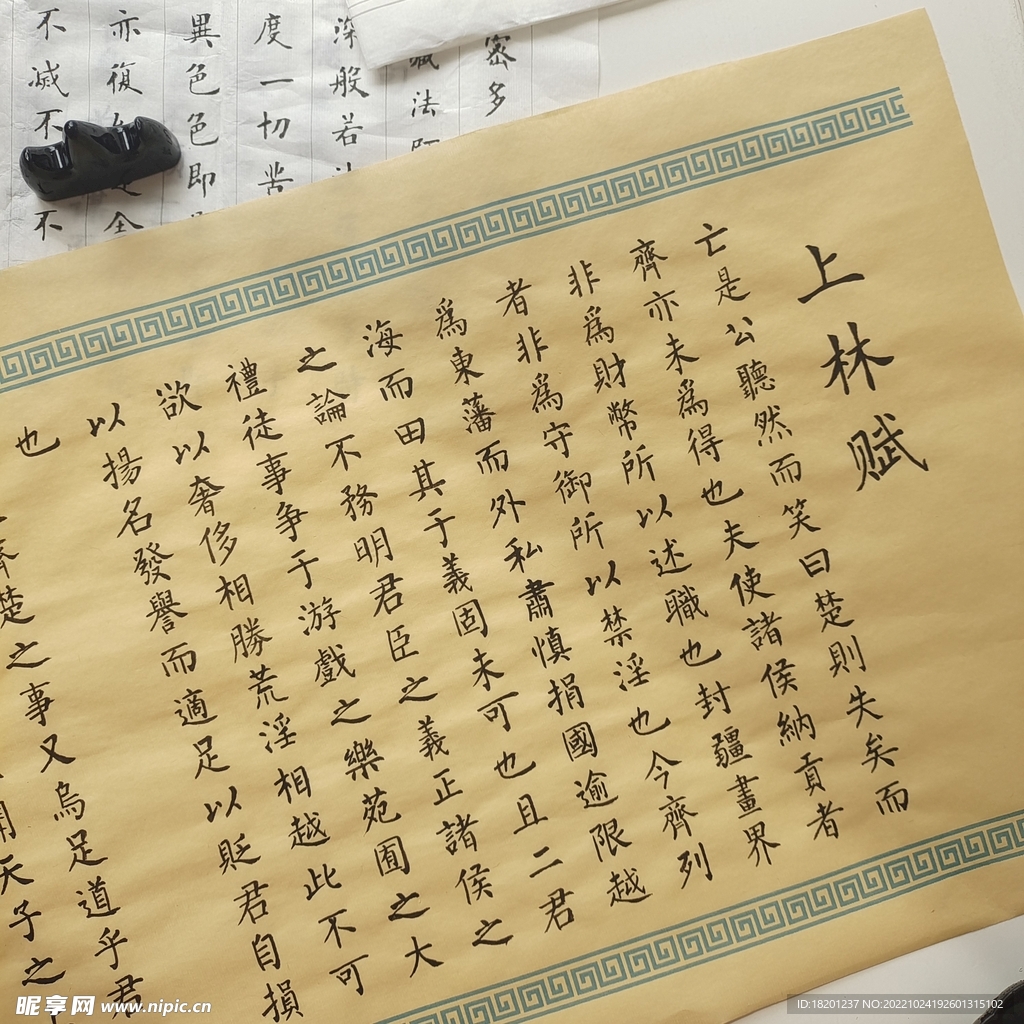 上林赋
亡是公聽然而笑曰楚則失矣而
齊亦未爲得也夫使諸侯納貢者
非爲財幣所以述職也封疆畫界
者非爲守御所以禁淫也今齊列
爲東藩而外私肅慎捐國逾限越
海而田其于義固未可也且二君
之論不務明君臣之義正諸侯之
禮徒事争于游戲之樂苑囿之大
欲以奢侈相勝荒淫相越此不可
以揚名發譽而適足以貶君自損
也
齊楚之事又烏足道乎君
天子之
密多
藏法
深般若
度一切苦
異色色即
亦復
不滅不
不
昵享网 www.nipic.cn
ID:18201237 NO:20221024192601315102